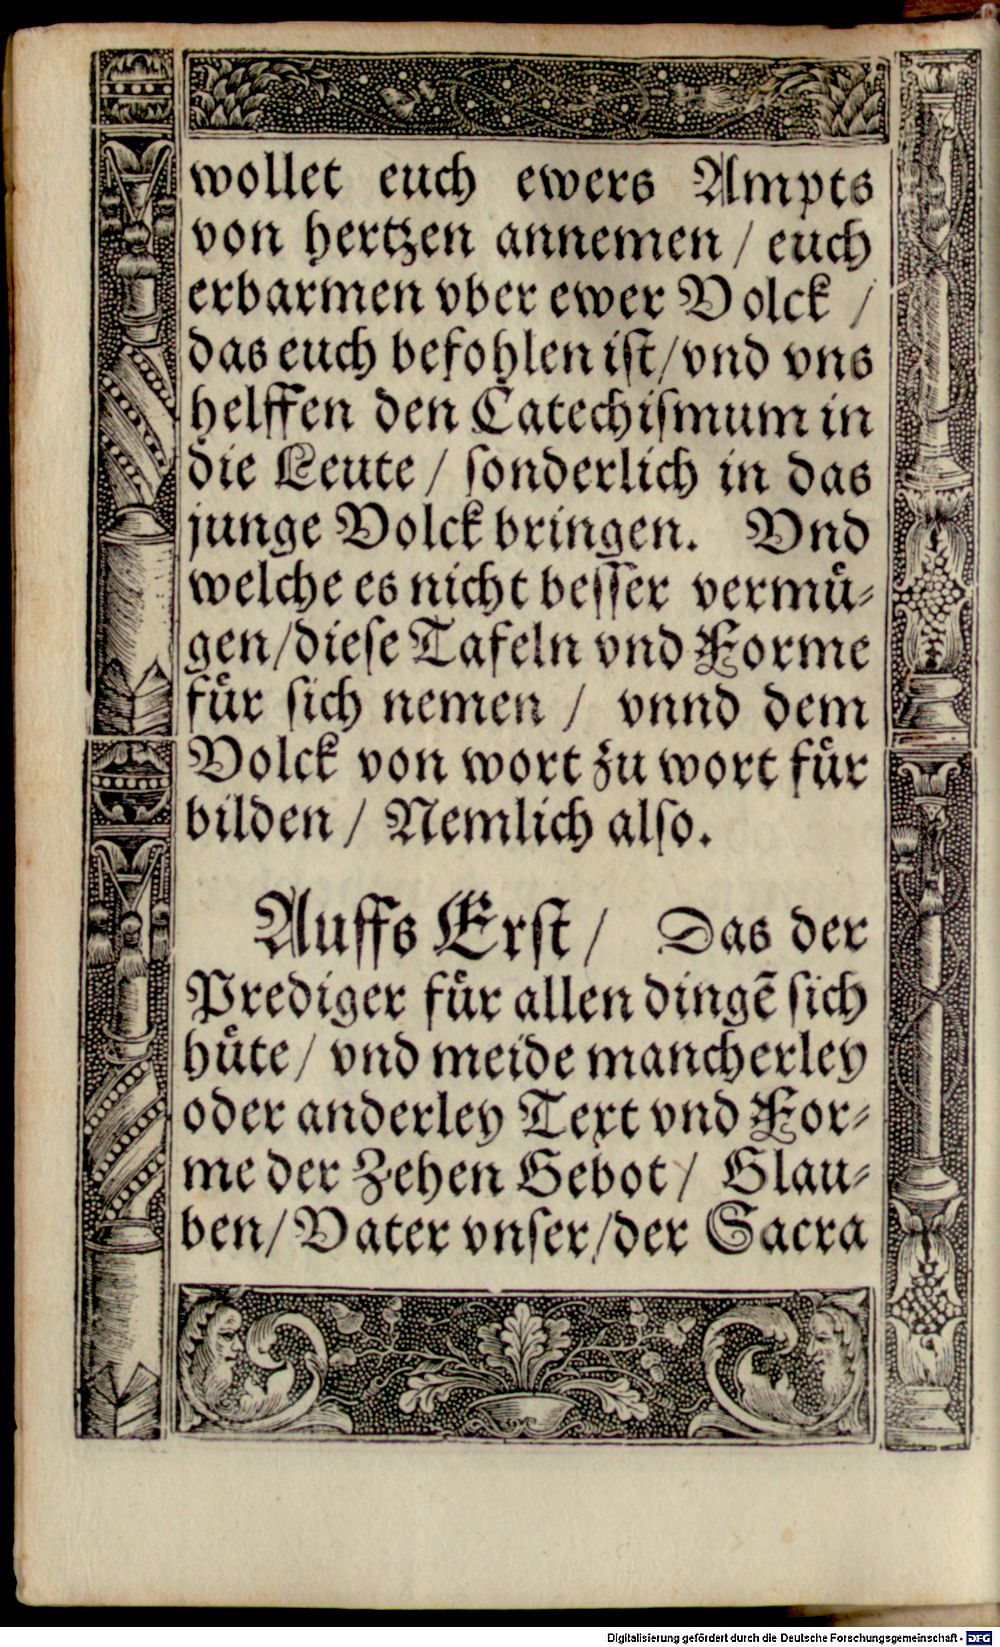 wollet euch ewers Ampts
von hertzen annemen / euch
erbarmen vber ewer Volck /
das euch befohlen iſt / vnd vns
helffen den Catechiſmum in
die Leute / ſonderlich in das
junge Volck bringen. Vnd
welche es nicht beſſer vermuͤ⸗
gen / dieſe Tafeln vnd Forme
fuͤr ſich nemen / vnnd dem
Volck von wort zu wort fuͤr
bilden / Nemlich alſo.
Auffs Erſt / Das der
Prediger fuͤr allen dingẽ ſich
huͤte / vnd meide mancherley
oder anderley Text vnd For⸗
me der Zehen Gebot / Glau⸗
ben / Vater vnſer / der Sacra
Digitalisierung gefördert durch die Deutsche Forschungsgemeinschaft - DFG